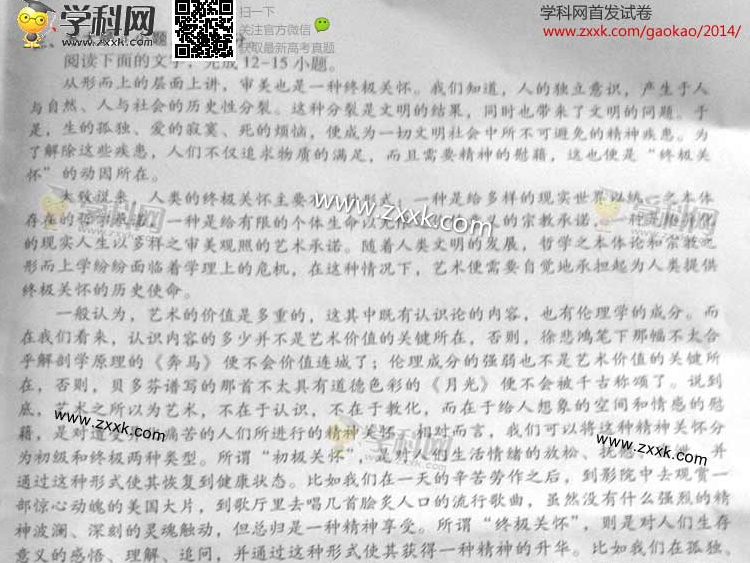 学科网
www.zxxk.com
扫一下
关注官方微信
获取最新高考真题
学科网首发试卷
www.zxxk.com/gaokao/2014/
阅读下面的文字，完成12-15小题。
从形而上的层面上讲，审美也是一种终极关怀。我们知道，人的独立意识，产生于人
与自然、人与社会的历史性分裂。这种分裂是文明的结果，同时也带来了文明的问题。于
是，生的孤独、爱的寂寞、死的烦恼，便成为一切文明社会中所不可避免的精神疾患。为
了解除这些疾患，人们不仅追求物质的满足，而且需要精神的慰藉，这也便是“终极关
怀”的动因所在。
大致说来，人类的终极关怀主要 种是给多样的现实世界以统一之本体
存在的哲学承诺，一种是给有限的个体生命以无 义的宗教承诺，
的现实人生以多样之审美观照的艺术承诺。随着人类文明的发展，哲学之本体论和宗教之
形而上学纷纷面临着学理上的危机，在这种情况下，艺术便需要自觉地承担起为人类提供
终极关怀的历史使命。
www.zxxk.com
一般认为，艺术的价值是多重的，这其中既有认识论的内容，也有伦理学的成分。而
在我们看来，认识内容的多少并不是艺术价值的关健所在，否则，徐悲鸿笔下那幅不太合
乎解剖学原理的《奔马》便不会价值连城了；伦理成分的强弱也不是艺术价值的关键所
在，否则，贝多芬谱写的那首不太具有道德色彩的《月光》便不会被千古称颂了。说到
底，艺术之所以为艺术，不在于认识，不在于教化，而在于给人想象的空间和情感的慰
藉，是对遭受 痛苦的人们所进行的精神关怀。相对而言，我们可以将这种精神关怀分
www.zxxk.com
学科网
www.zxxk.com
为初级和终极两种类型。所谓“初级关怀”，是对人们生活情绪的放松、抚慰 并
通过这种形式使其恢复到健康状态。比如我们在一天的辛苦劳作之后，到影院中去观赏一
部惊心动魄的美国大片，到歌厅里去唱几首脍炙人口的流行歌曲，虽然没有什么强烈的精
神波澜、深刻的灵魂触动，但总归是一种精神享受。所谓“终极关怀”，则是对人们生存
意义的感悟、理解、追问，并通过这种形式使其获得一种精神的升华。比如我们在孤独、